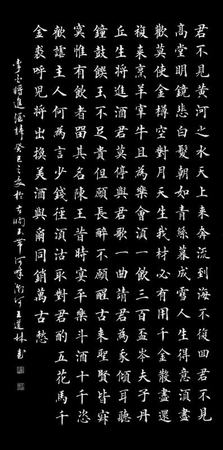 君不見黃河之水天上來奔流到海不復回君不見
高堂明鏡悲白髮朝如青絲暮成雪人生得意須盡
歡莫使金樽空對月天生我材必有用千金散盡還
復來烹羊宰牛且為樂會須一飲三百盃岑夫子丹
丘生將進酒君莫停與君歌一曲請君為我傾耳聽
鐘鼓饌玉不足貴但願長醉不願醒古來聖賢皆寂
寞惟有飲者留其名陳王昔時宴平樂斗酒十千恣
歡謔主人何為言少錢徑須沽取對君酌五花馬千
金裘呼兒將出換美酒與爾同銷萬古愁
李白將進酒詩癸巳之夏於古王道林書